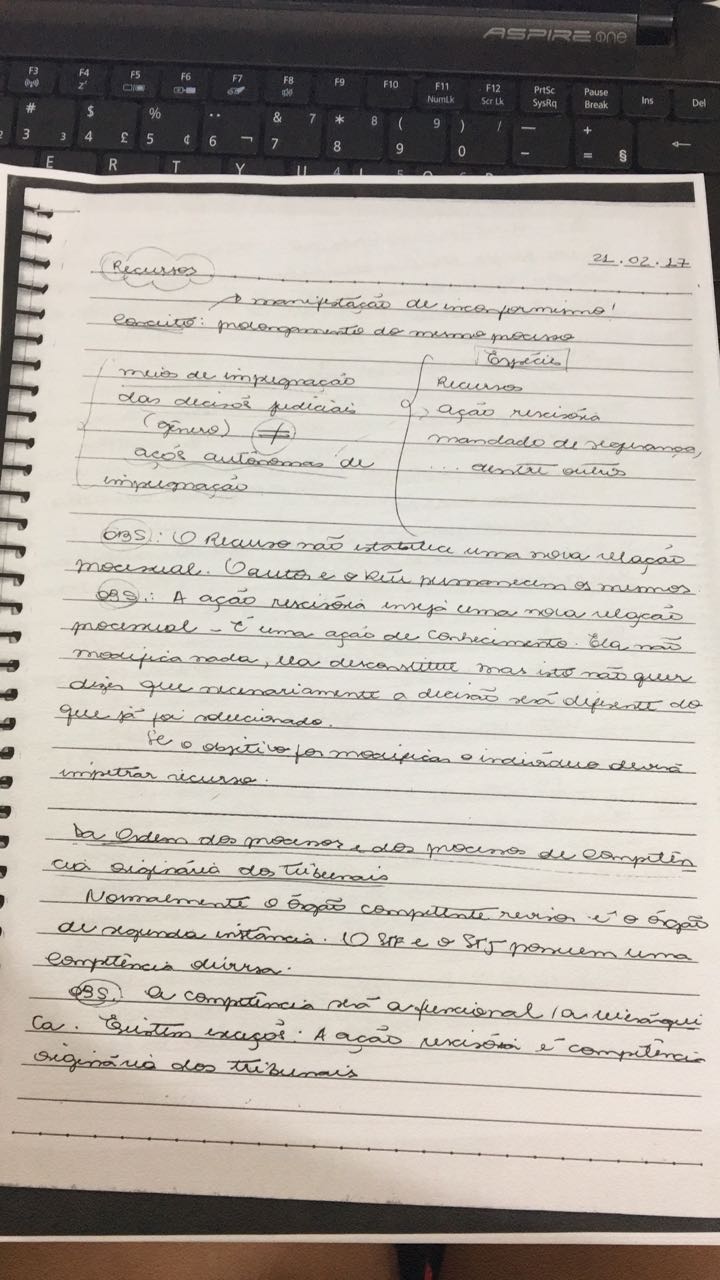 ASPIRE one
F3 F4 F5 F6 F7 F8 F9 F10 F11 F12 PrtSc Pause Ins Del
NumLk Scr Lk SysRq Break
# $ % ¨ & 7 * 8 ( 9 ) / — +
3 3 4 £ 5 ¢ 6 ¬ 7 8 9 0 - = §
E R T Y U
21.02.17
Recursos
→ manifestação de inconformismo!
Conceito: prolongamento do mesmo processo
Espécies
meios de impugnação
das decisões judiciais
(gênero) +
ações autônomas de
impugnação
Recursos
ação rescisória
mandado de segurança,
... dentre outros
OBS.: O Recurso não estabelece uma nova relação
processual. O autor e o Réu permanecem os mesmos.
OBS.: A ação rescisória enseja uma nova relação
processual - É uma ação de conhecimento. Ela não
modifica nada, ela desconstitui mas isto não quer
dizer que necessariamente a decisão será diferente do
que já foi solucionado.
Se o objetivo for modificar o indivíduo deverá
impetrar recurso.
Da Ordem dos processos e dos processos de competên
cia originária dos Tribunais
Normalmente o órgão competente revisor é o órgão
de segunda instância. O STF e o STJ possuem uma
competência diversa.
OBS. A competência será a funcional / a hierárqui
ca. Existem exceções: A ação rescisória é competência
originária dos tribunais